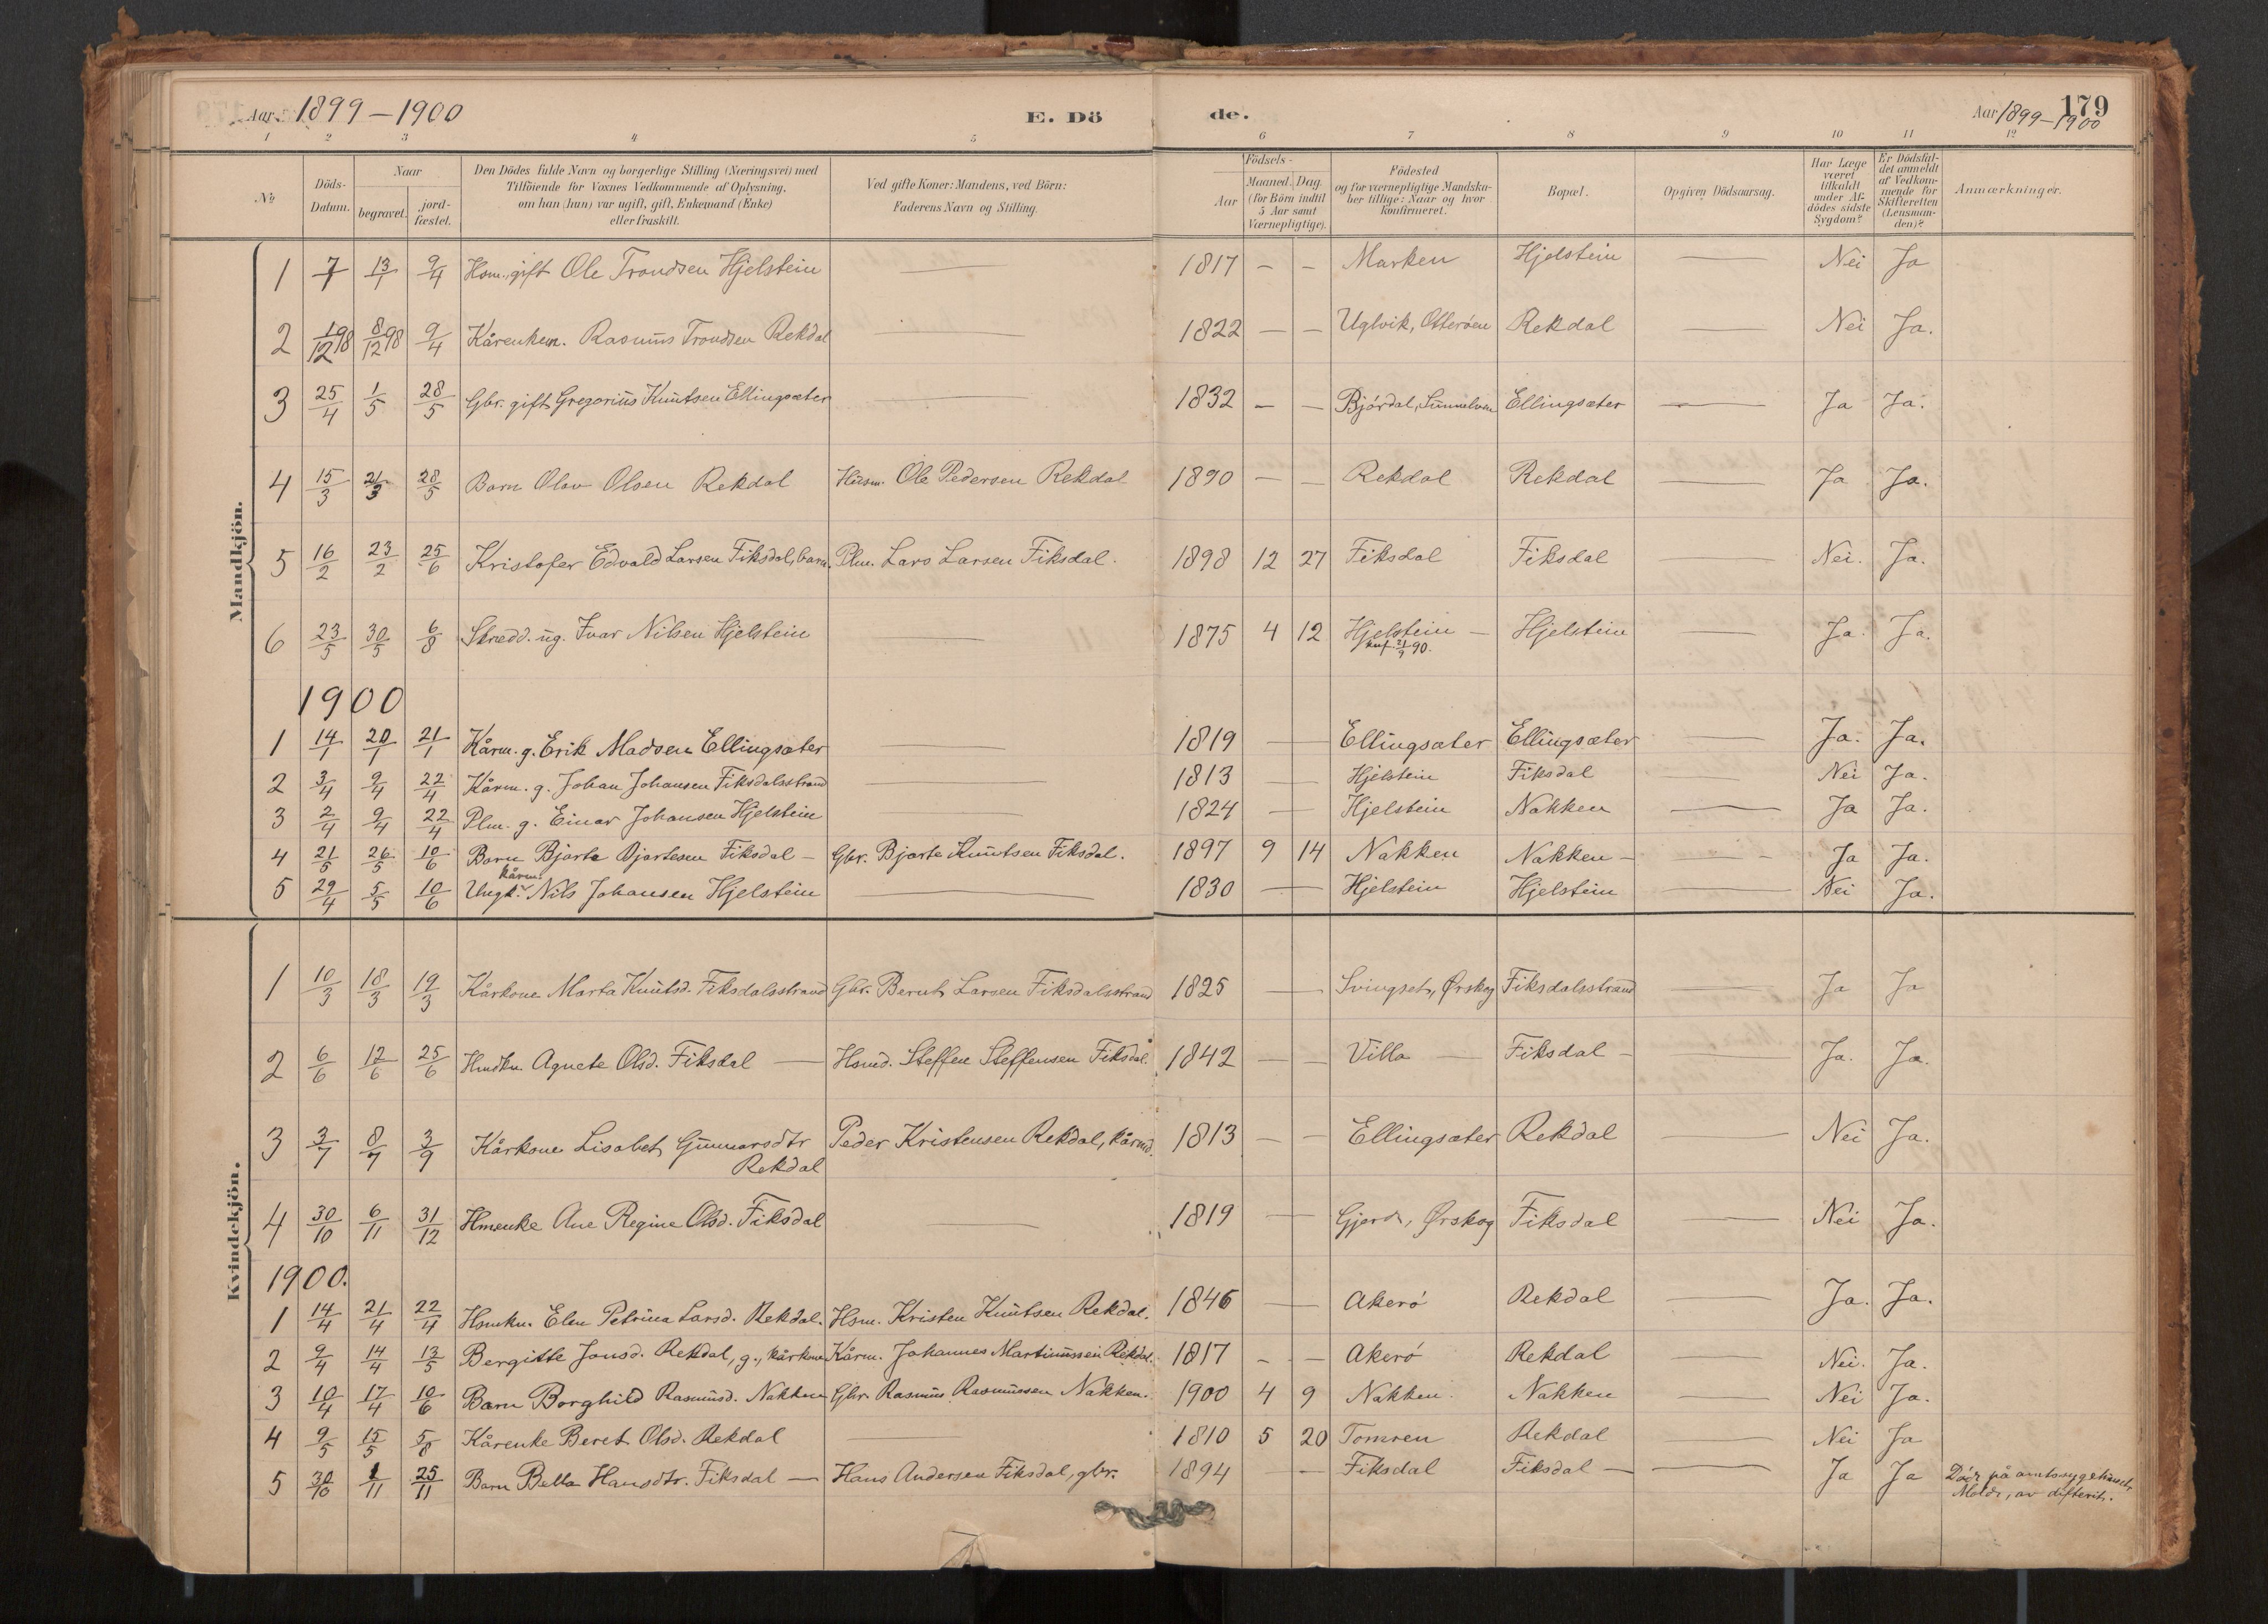 Aar 1899-1900 E. Dö de. Aar 1899-1900 179
1 2 3 4 5 6 7 8 9 10 11 12
No Döds-Datum. Naar begravet. jord-fæstet. Den Dödes fulde Navn og borgerlige Stilling (Næringsvei) med Tilföiende for Voxnes Vedkommende af Oplysning, om han (hun) var ugift, gift, Enkemand (Enke) eller fraskilt. Ved gifte Koner: Mandens, ved Börn: Faderens Navn og Stilling. Födsels- Aar Maaned. Dag. (for Börn indtil 5 Aar samt Værnepligtige). Födested og for værnepligtige Mandskaber tillige: Naar og hvor konfirmeret. Bopæl. Opgiven Dödsaarsag. Har Læge været tilkaldt under Afdödes sidste Sygdom? Er Dödsfaldet anmeldt af Vedkommende for Skifteretten (Lensmanden)? Anmærkninger.
Mandkjön.
1 7/1 13/1 9/4 Hsm., gift Ole Trondsen Hjelstein — 1817 — — Marken Hjelstein — Nei Ja
2 19/12 98 8/12 98 9/4 Kårenkem. Rasmus Trondsen Rekdal — 1822 — — Uglvik, Otteröen Rekdal — Nei Ja.
3 25/4 1/5 28/5 Gbr. gift Gregorius Knutsen Ellingsæter — 1832 — — Bjórdal, Sunnelven Ellingsæter — Ja Ja.
4 15/3 21/3 28/5 Barn Olav Olsen Rekdal Husm. Ole Pedersen Rekdal 1890 — — Rekdal Rekdal — Ja Ja.
5 16/2 23/2 25/6 Kristofer Edvald Larsen Fiksdal, barn. Plm. Lars Larsen Fiksdal. 1898 12 27 Fiksdal Fiksdal — Nei. Ja.
6 23/5 30/5 6/8 Skrædd. ug. Ivar Nilsen Hjelstein — 1875 4 12 Hjelstein — Hjelstein — Ja. Ja.
knf. 21/9 90.
1900
1 14/1 20/1 21/1 Kårm. g. Erik Madsen Ellingsæter 1819 — Ellingsæter Ellingsæter — Ja. Ja.
2 3/4 9/4 22/4 Kårm. g. Johan Johansen Fiksdalsstrand — 1813 — Hjelstein Fiksdal — Nei Ja.
3 2/4 9/4 22/4 Plm. g. Einar Johansen Hjelstein — 1824 — Hjelstein Nakken — Ja Ja.
4 21/5 26/5 10/6 Barn Bjarte Bjartesen Fiksdal — Gbr. Bjarte Knutsen Fiksdal. 1897 9 14 Nakken Nakken — — Ja Ja.
kårm.
5 29/4 5/5 10/6 Ungk. Nils Johansen Hjelstein — 1830 — Hjelstein Hjelstein — Nei Ja.
Kvindekjön.
1 10/3 18/3 19/3 Kårkone Marta Knutsd. Fiksdalsstrand Gbr. Bernt Larsen Fiksdalsstrand 1825 — Svingset, Ørskog Fiksdalsstrand — Ja Ja
2 6/6 12/6 25/6 Hmdkn. Agnete Olsd. Fiksdal — Hsmd. Steffen Steffensen Fiksdal. 1842 — — Villa — Fiksdal — — Ja. Ja.
3 3/7 8/7 3/9 Kårkone Lisabet Gunnarsdtr Peder Kristensen Rekdal, kårmd. 1813 — — Ellingsæter Rekdal — Nei Ja.
Rekdal
4 30/10 6/11 31/12 Hmenke Ane Regine Olsd. Fiksdal — 1819 — Gjerde, Ørskog Fiksdal — Nei Ja.
1900.
1 14/4 21/4 22/4 Hsmkn. Elen Petrina Larsd. Rekdal. Hsm. Kristen Knutsen Rekdal. 1846 — Akerö Rekdal — Ja. Ja.
2 9/4 14/4 13/5 Bergitte Jonsd. Rekdal, g., kårkone Kårm. Johannes Martinussen Rekdal. 1817 — — Akerö Rekdal — Nei. Ja.
3 10/4 17/4 10/6 Barn Borghild Rasmusd. Nakken Gbr. Rasmus Rasmussen Nakken. 1900 4 9 Nakken. Nakken — Nei Ja.
4 9/5 15/5 5/8 Kårenke Beret Olsd. Rekdal — 1810 5 20 Tomren Rekdal — Nei Ja
5 30/10 1/11 25/11 Barn Bella Hansdtr. Fiksdal — Hans Andersen Fiksdal, gbr. 1894 — Fiksdal Fiksdal — — Ja Ja Död på amtssygehuset,
Molde, av difterit.